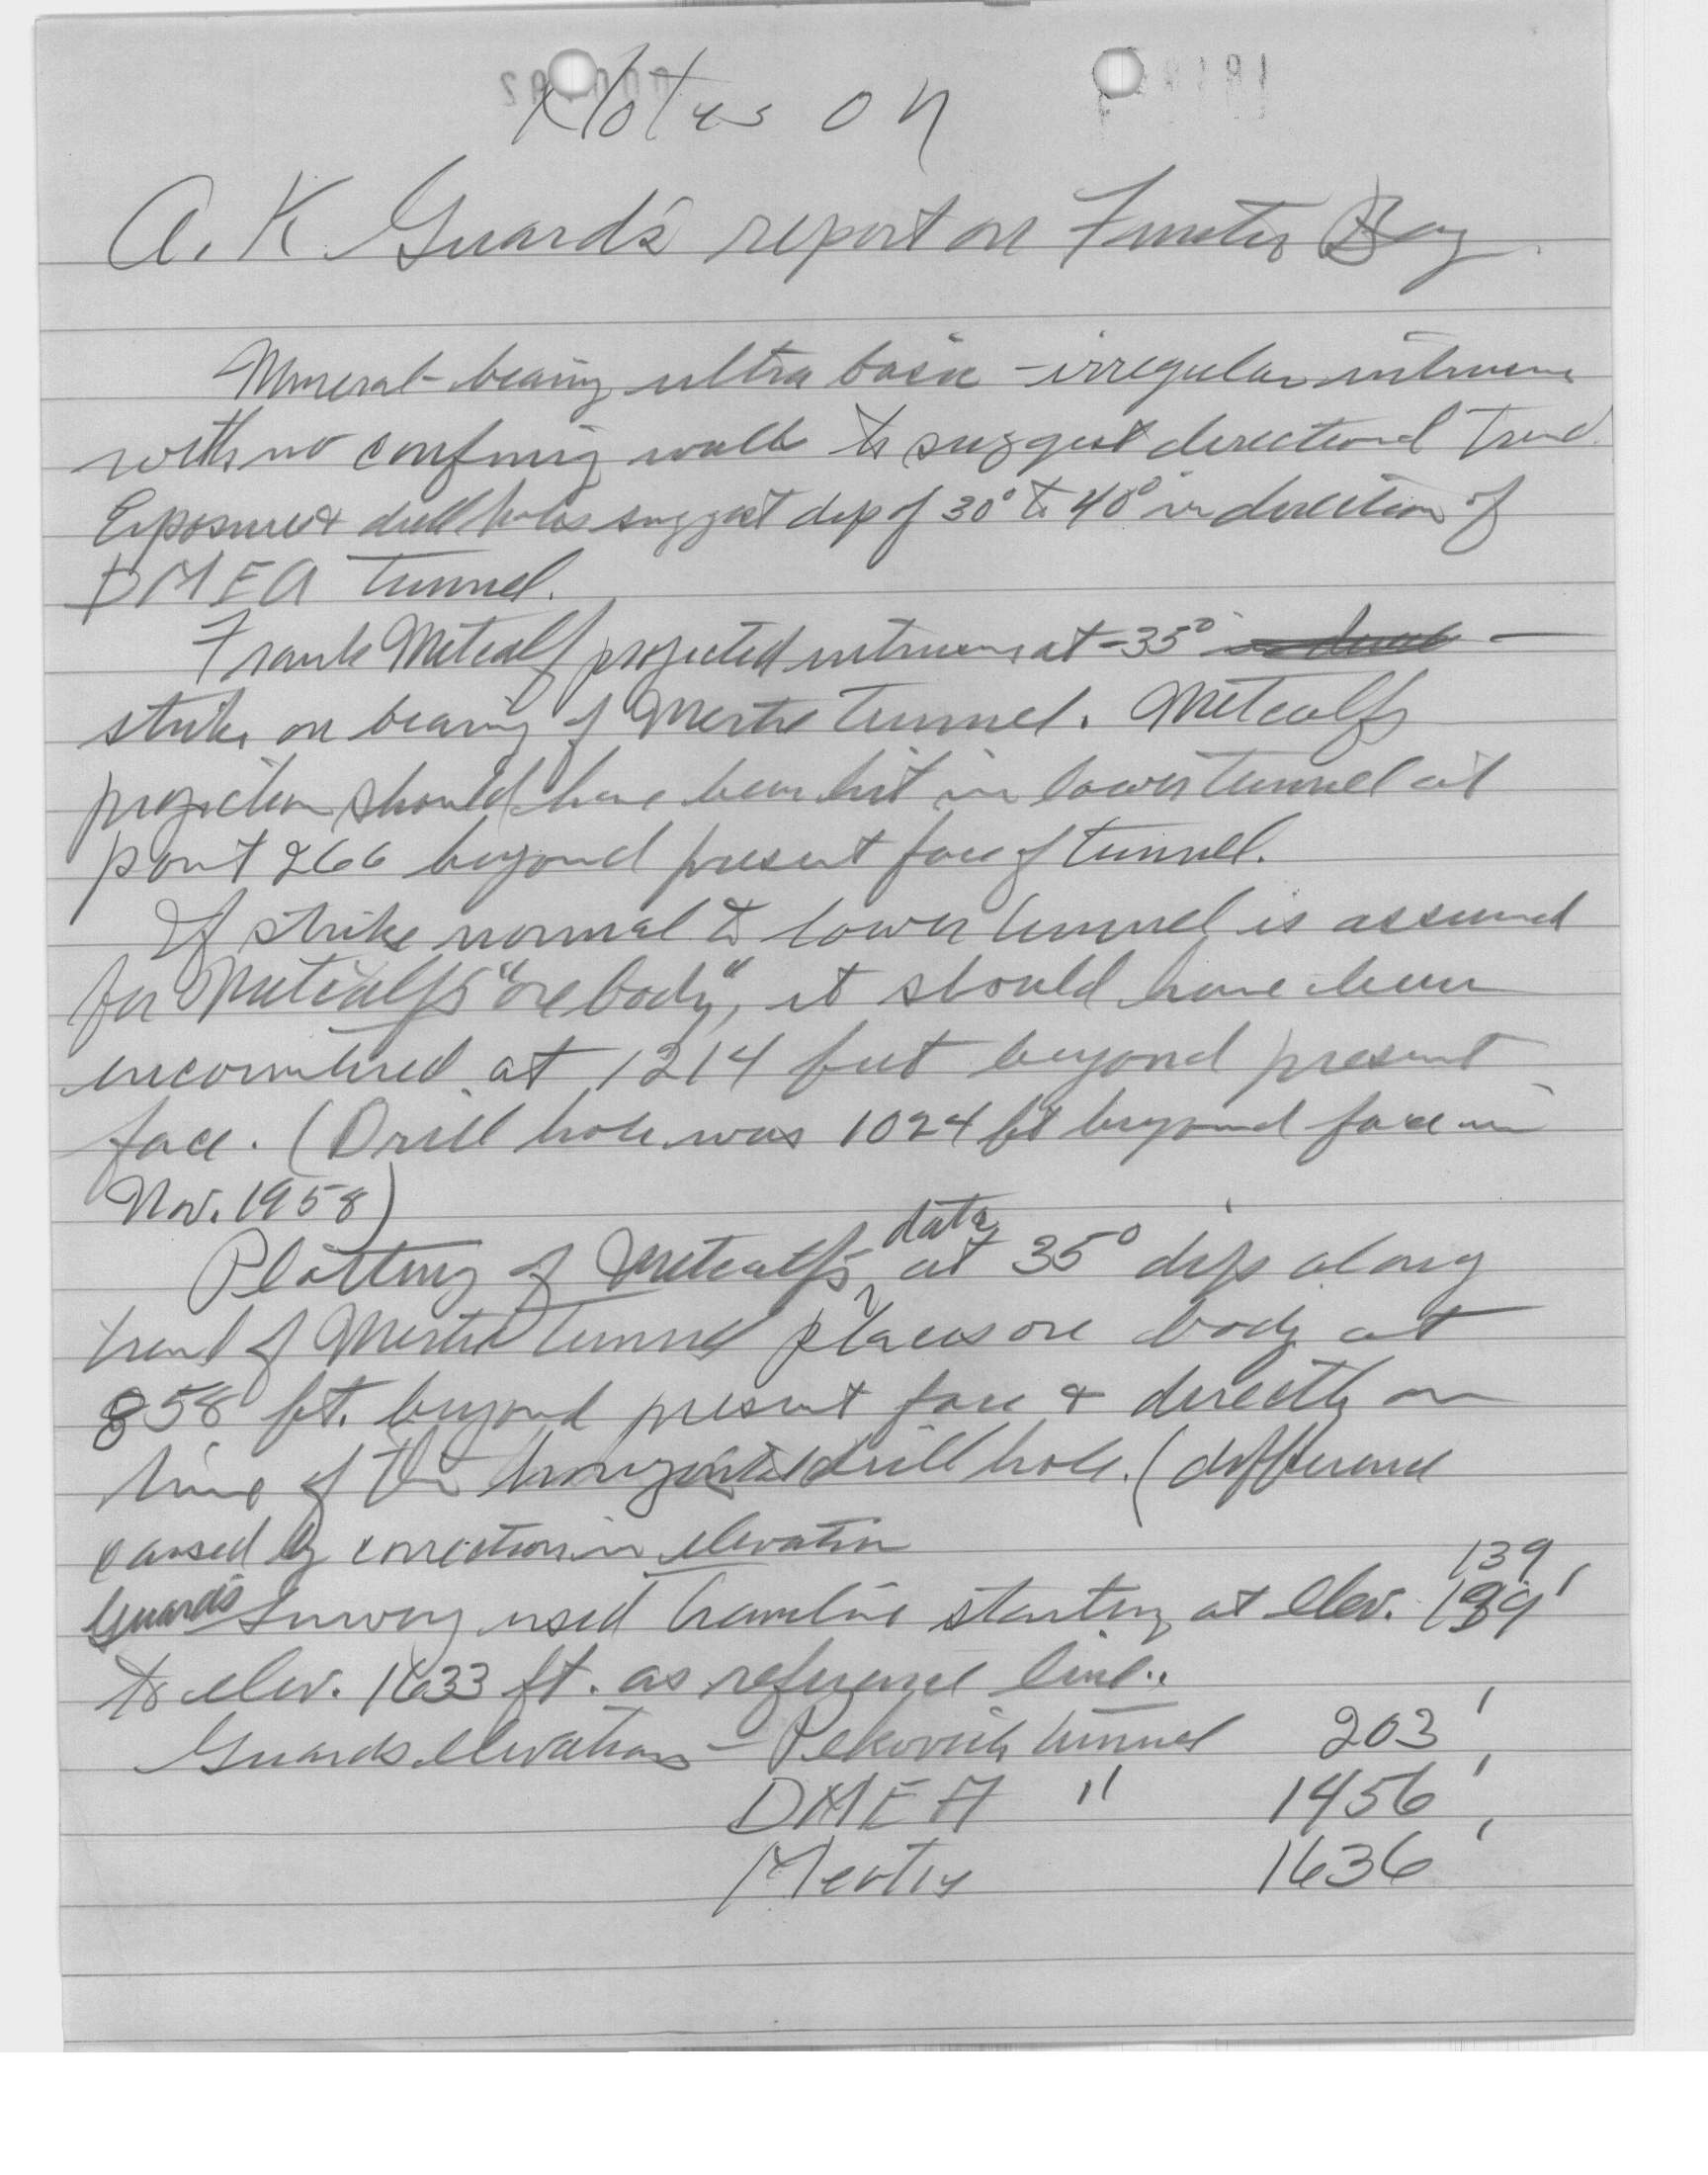 Notes on
A. K. Guard's report on Funter Bay
Mineral-bearing ultra basic - irregular intrusive
with no confining walls to suggest directional trend.
Exposures & drill holes suggest dip of 30° to 40° in direction of
DMEA tunnel.
Frank Metcalf projected intrusive at -35° -
strike on bearing of Mertie tunnel. Metcalf's
projection should have been hit in lower tunnel at
point 266 beyond present face of tunnel.
If strike normal to lower tunnel is assumed
for Metcalf's "ore body", it should have been
encountered at 1214 feet beyond present
face. (Drill hole was 1024 ft beyond face in
Nov. 1958)
Plotting of Metcalf's data at 35° dip along
trend of Mertie tunnel places ore body at
858 ft. beyond present face & directly on
line of the horizontal drill hole. (difference
caused by correction in elevation
Guard's survey used tramline starting at elev. 139'
to elev. 1633 ft. as reference line.
Guards elevations - Pekovich tunnel 203'
DMEA " 1456'
Mertie 1636'